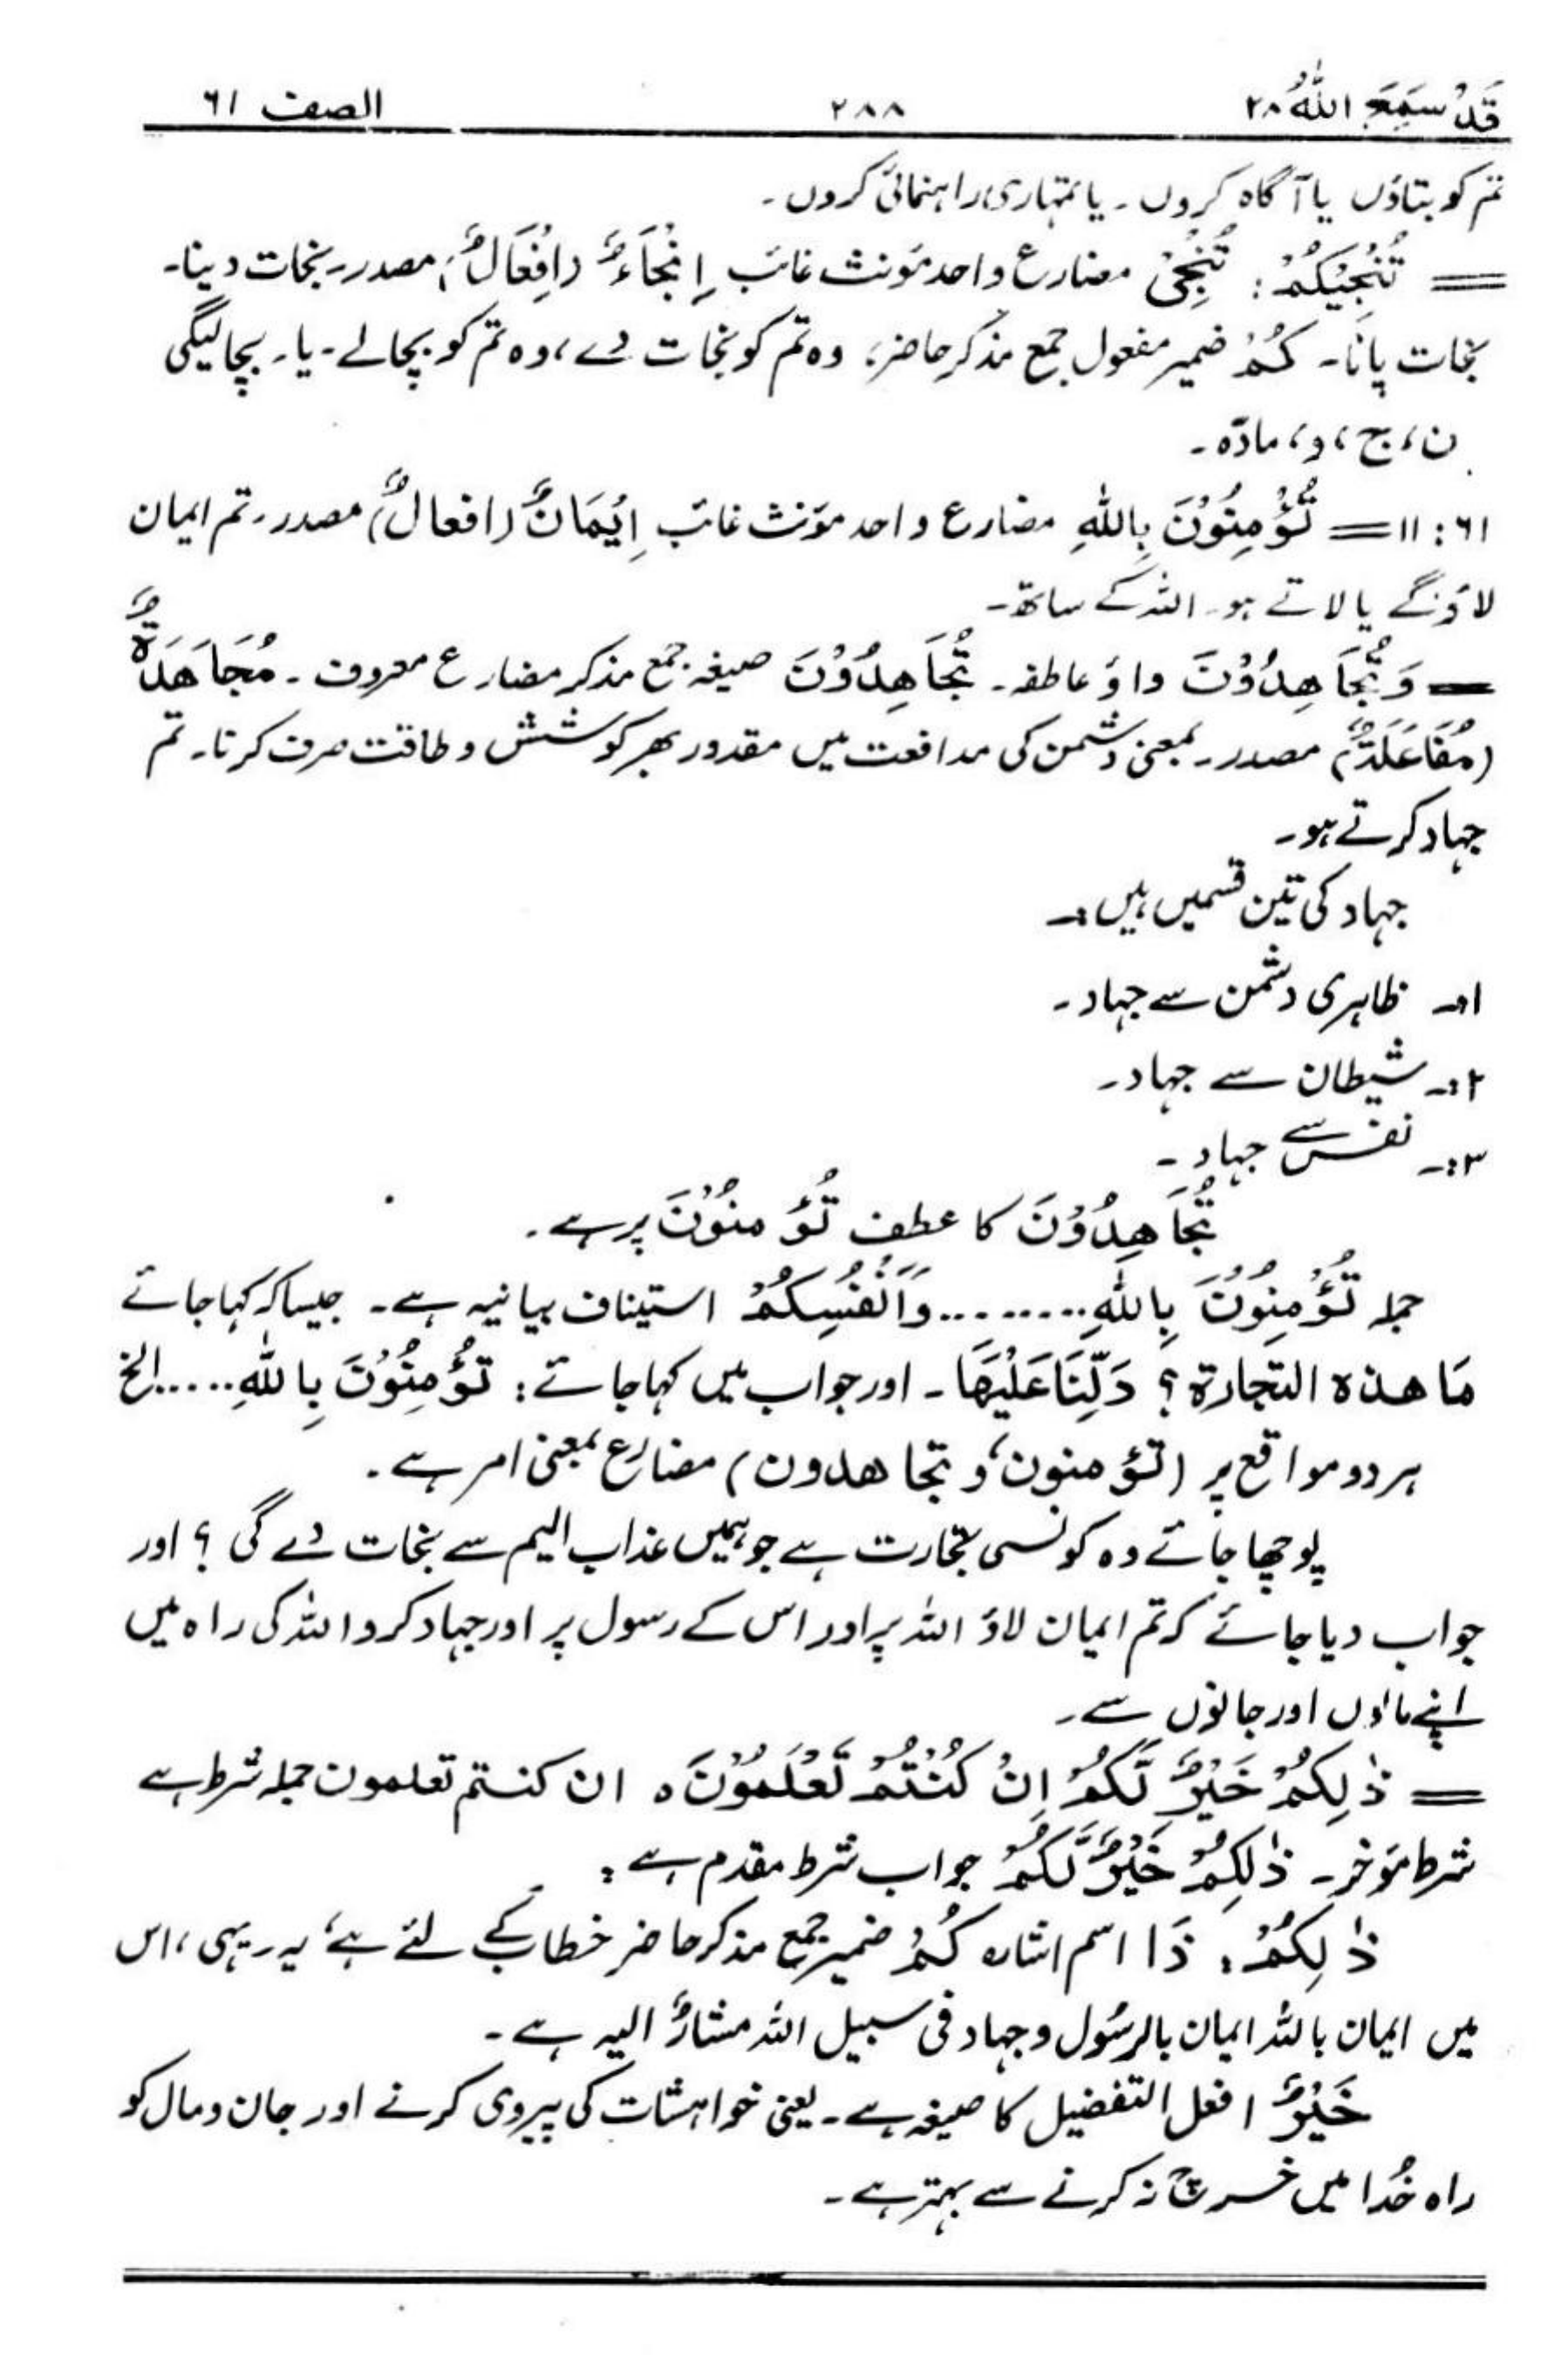 قَدْ سَمِعَ اللّٰهُ ۲۸ ۲۸۸ الصف ۶۱
تم کو بتاؤں یا آگاہ کروں ۔ یا تمہاری راہنمائی کروں ۔
= تُنْجِیْکُمْ : تُنْجِیْ مضارع واحد مؤنث غائب اِنْجَاءٌ (اِفْعَالٌ) مصدر ۔ نجات دینا ۔
نجات پانا ۔ کُمْ ضمیر مفعول جمع مذکر حاضر ، وہ تم کو نجات دے ، وہ تم کو بچالے ۔ یا ۔ بچالیگی
ن ، ج ، و ، مادّہ ۔
۶۱ : ۱۱ = تُؤْمِنُوْنَ بِاللّٰهِ مضارع واحد مؤنث غائب اِیْمَانٌ (افعالٌ) مصدر ۔ تم ایمان
لاؤگے یا لاتے ہو ۔ اللہ کے ساتھ ۔
= وَ تُجَاهِدُوْنَ واؤ عاطفہ ۔ تُجَاهِدُوْنَ صیغہ جمع مذکر مضارع معروف ۔ مُجَاهَدَةٌ
(مُفَاعَلَةٌ) مصدر ۔ بمعنی دشمن کی مدافعت میں مقدور بھر کوشش و طاقت صرف کرنا ۔ تم
جہاد کرتے ہو ۔
جہاد کی تین قسمیں ہیں :۔
۱:۔ ظاہری دشمن سے جہاد ۔
۲:۔ شیطان سے جہاد ۔
۳:۔ نفس سے جہاد ۔
تُجَاهِدُوْنَ کا عطف تُؤْمِنُوْنَ پر ہے ۔
جملہ تُؤْمِنُوْنَ بِاللّٰهِ ......... وَاَنْفُسِکُمْ استیناف بیانیہ ہے ۔ جیساکہ کہا جائے
مَا هذه التجارة ؟ دَلِّنَا عَلَيْهَا ۔ اور جواب میں کہا جائے : تُؤْمِنُوْنَ بِاللّٰهِ ..... الخ
ہر دو مواقع پر (تؤمنون ، و تجاهدون) مضارع بمعنی امر ہے ۔
پوچھا جائے وہ کونسی تجارت ہے جو ہمیں عذاب الیم سے نجات دے گی ؟ اور
جواب دیا جائے کہ تم ایمان لاؤ اللہ پر اور اس کے رسول پر اور جہاد کرو اللہ کی راہ میں
اپنے مالوں اور جانوں سے ۔
= ذٰلِکُمْ خَیْرٌ لَّکُمْ اِنْ کُنْتُمْ تَعْلَمُوْنَ ہ ان کنتم تعلمون جملہ شرط ہے
شرط مؤخر ۔ ذٰلِکُمْ خَیْرٌ لَّکُمْ جواب شرط مقدم ہے :
ذٰلِکُمْ : ذَا اسم اشارہ کُمْ ضمیر جمع مذکر حاضر خطاب کے لئے ہے ، یہ ۔ یہی ، اس
میں ایمان باللہ ایمان بالرسُول و جہاد فی سبیل اللہ مشارٌ الیہ ہے ۔
خَیْرٌ افعل التفضیل کا صیغہ ہے ۔ یعنی خواہشات کی پیروی کرنے اور جان و مال کو
راہ خُدا میں خرچ نہ کرنے سے بہتر ہے ۔